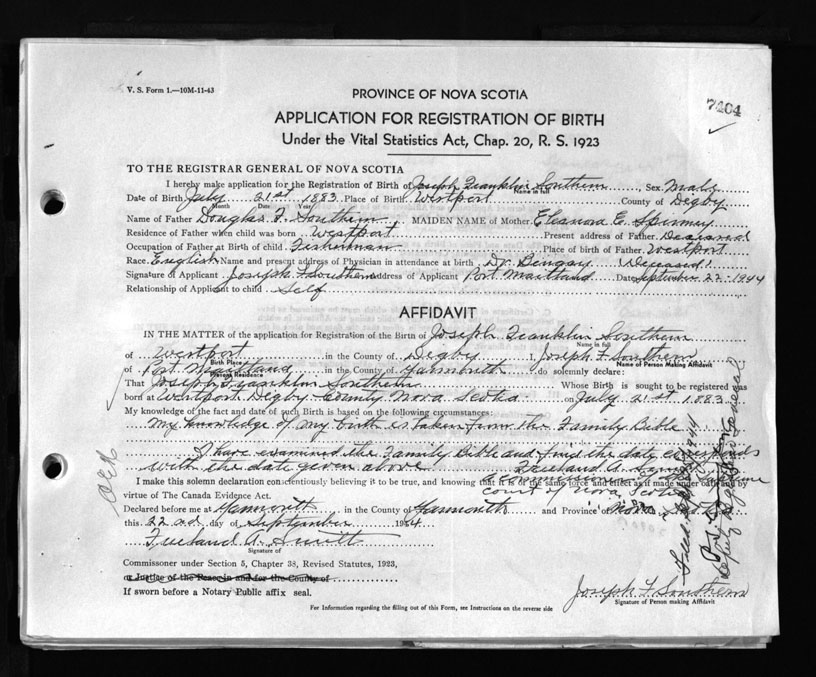 V. S. Form 1.—10M-11-43
PROVINCE OF NOVA SCOTIA
7404
APPLICATION FOR REGISTRATION OF BIRTH
Under the Vital Statistics Act, Chap. 20, R. S. 1923
TO THE REGISTRAR GENERAL OF NOVA SCOTIA
I hereby make application for the Registration of Birth of Joseph Franklin Southern, Sex Male
Name in full
Date of Birth July 21st 1883 Place of Birth Westport County of Digby
Month Date Year
Name of Father Douglas F. Southern, MAIDEN NAME of Mother Eleanora E. Spinney
Residence of Father when child was born Westport Present address of Father Deceased
Occupation of Father at Birth of child Fisherman Place of birth of Father Westport
Race English Name and present address of Physician in attendance at birth Dr. (Deceased)
Signature of Applicant Joseph F Southern Address of Applicant Port Maitland Date September 22 1944
Relationship of Applicant to child Self
AFFIDAVIT
IN THE MATTER of the application for Registration of the Birth of Joseph Franklin Southern
Name in full
of Westport in the County of Digby I, Joseph F Southern
Birth Place
Name of Person Making Affidavit
of Port Maitland in the County of Yarmouth do solemnly declare:
Present Residence
That Joseph Franklin Southern Whose Birth is sought to be registered was
born at Westport Digby County Nova Scotia on July 21st 1883.
My knowledge of the fact and date of such Birth is based on the following circumstances:
My knowledge of my birth is taken from the Family Bible
I have examined the Family Bible and find the date corresponds
with the date given above Freeland A.
I make this solemn declaration conscientiously believing it to be true, and knowing that it is of the same force and effect as if made under oath and by
virtue of The Canada Evidence Act.
Court of Nova Scotia
Declared before me at Yarmouth in the County of Yarmouth and Province of Nova Scotia
this 22nd day of September 1944
Freeland A. Smith
Signature of
Commissioner under Section 5, Chapter 38, Revised Statutes, 1923,
or Justice of the Peace in and for the County of
If sworn before a Notary Public affix seal.
Joseph F Southern
Signature of Person making Affidavit
For Information regarding the filling out of this Form, see Instructions on the reverse side